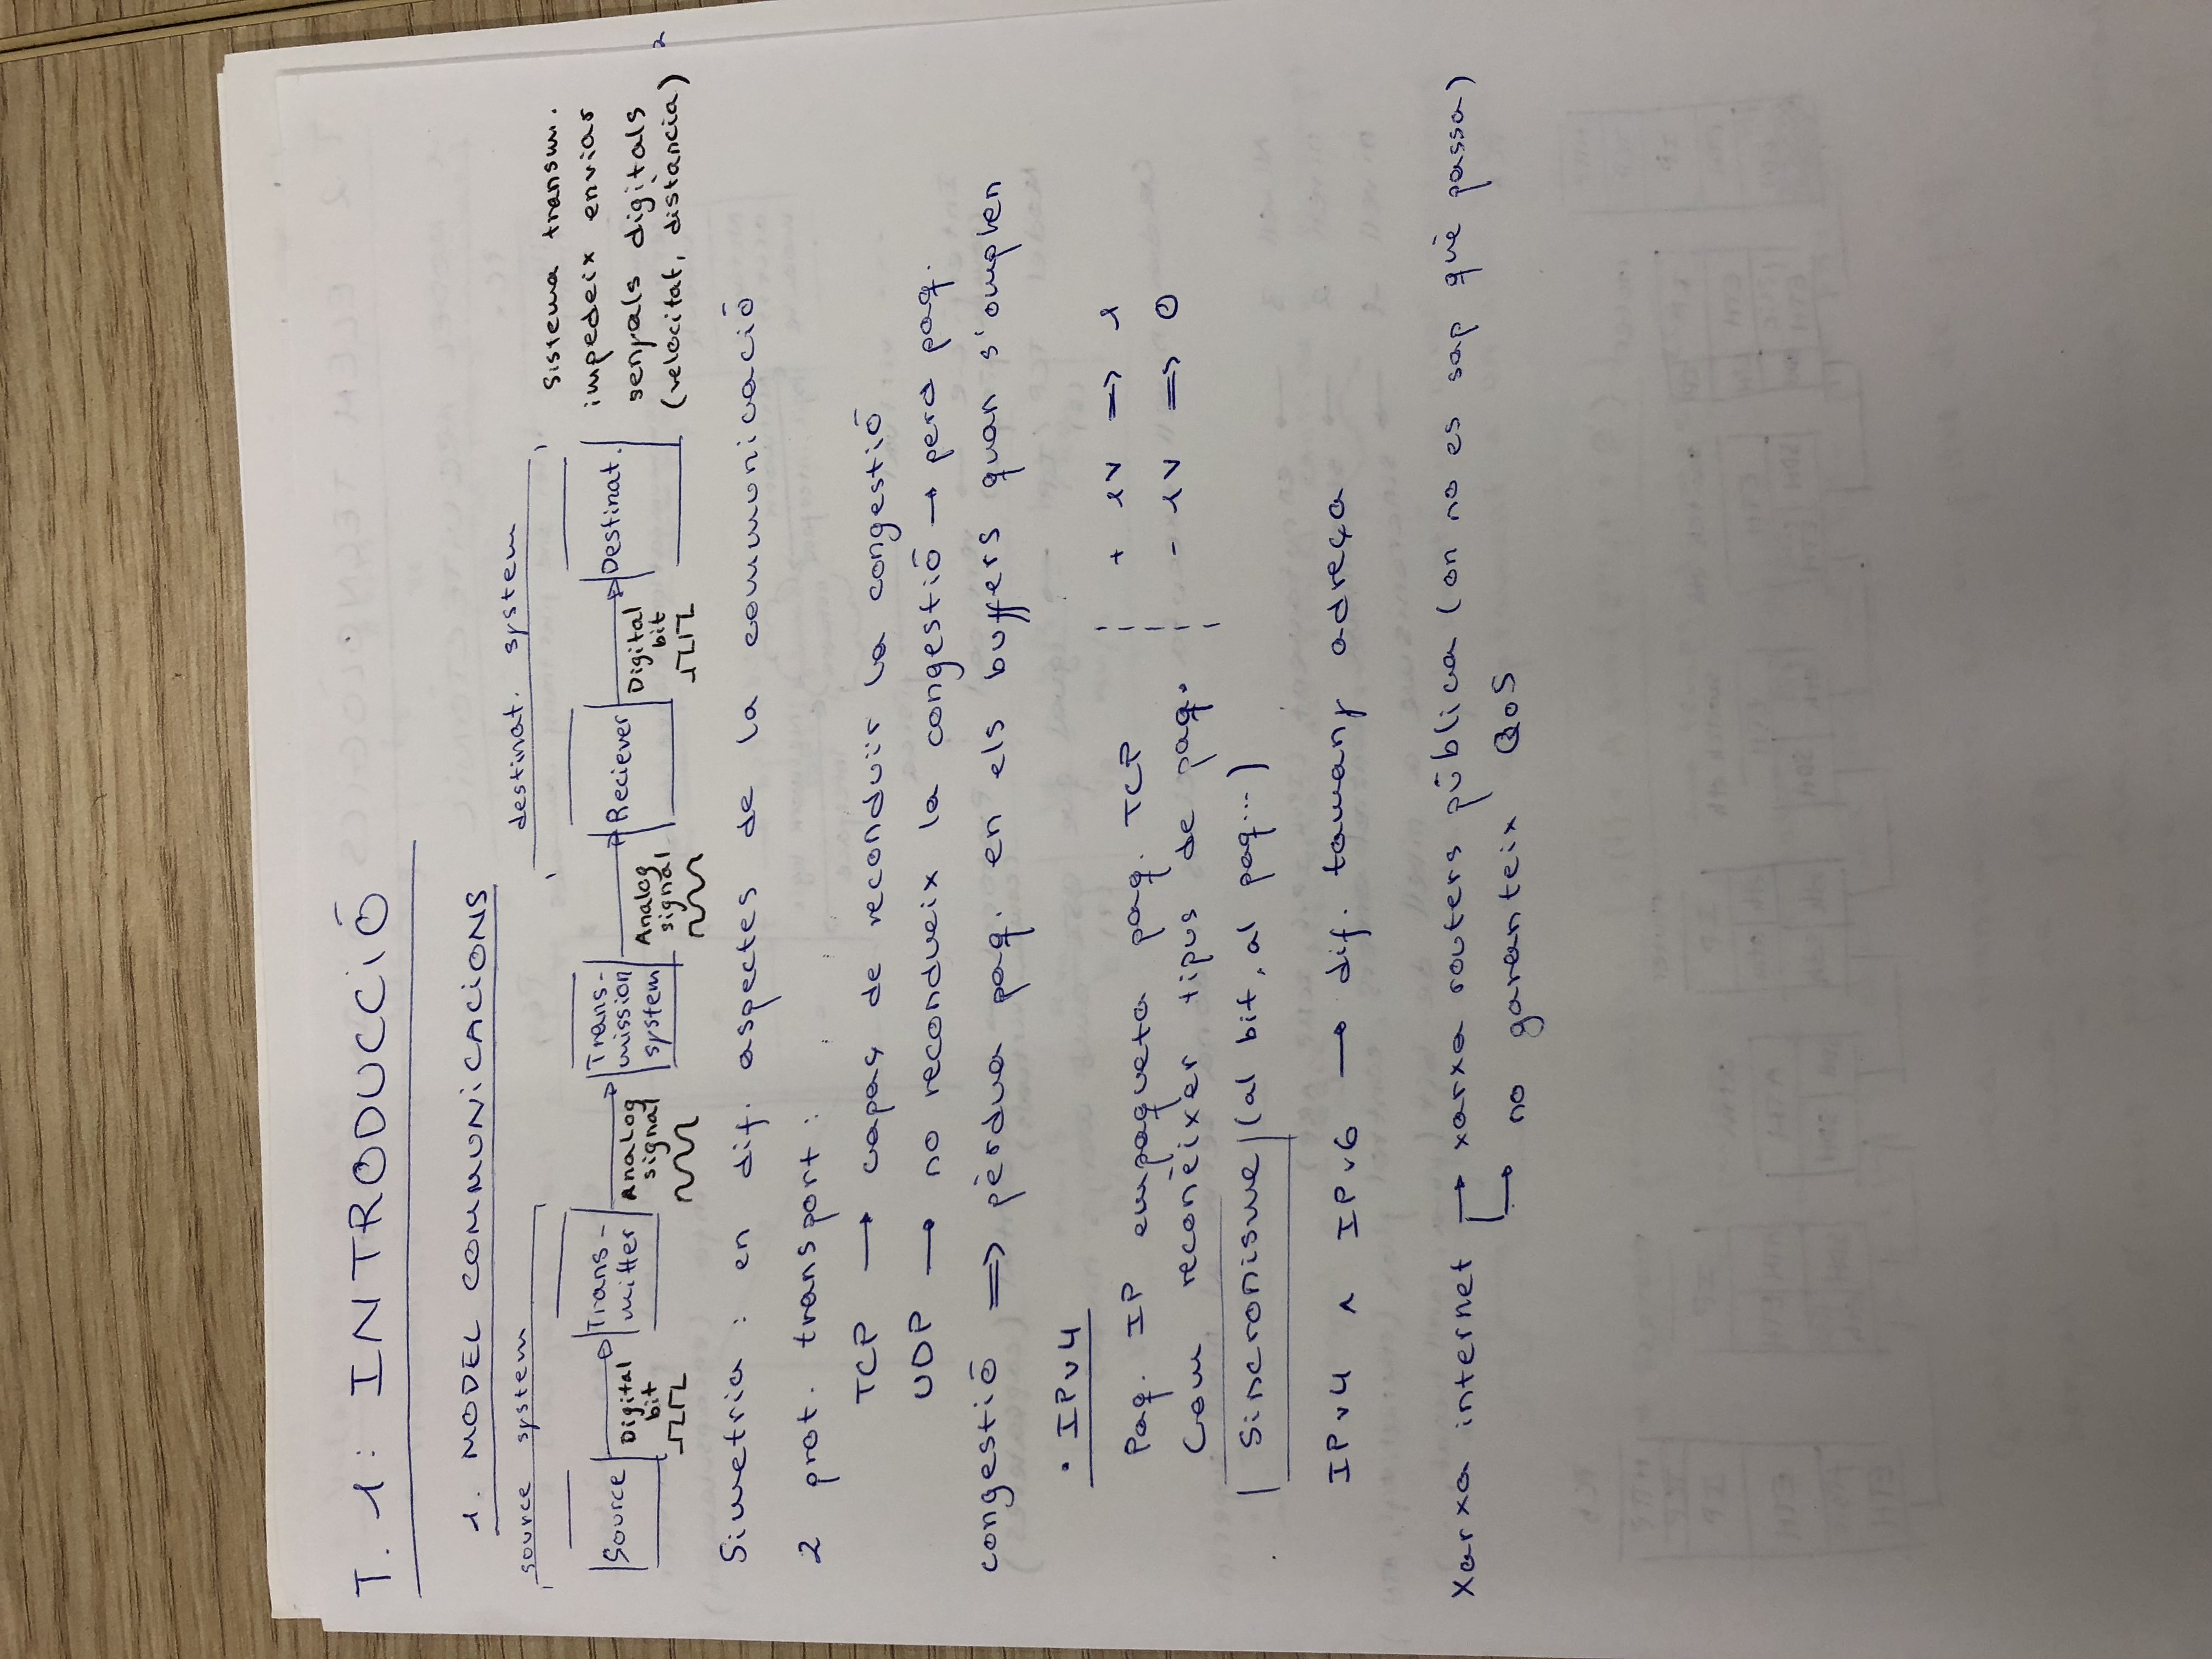 T. 1: INTRODUCCIÓ
1. MODEL COMMUNICACIONS
source system
destinat. system
Source
Digital
bit
Trans-
mitter
Analog
signal
Trans-
mission
system
Analog
signal
Reciever
Digital
bit
Destinat.
Sistema transm.
impedeix enviar
senyals digitals
(velocitat, distància)
Simetria : en dif. aspectes de la communicació
2 prot. transport :
TCP → capaç de reconduïr la congestió
UDP → no recondueix la congestió → perd paq.
congestió => pèrdua paq. en els buffers quan s'omplen
• IPv4
Paq. IP empaqueta paq. TCP
Com reconèixer tipus de paq.
+ 1V => 1
- 1V => 0
Sincronisme (al bit, al paq...)
IPv4 ∧ IPv6 → dif. tamany adreça
Xarxa internet → xarxa routers pública (on no es sap què passa)
→ no garanteix QoS